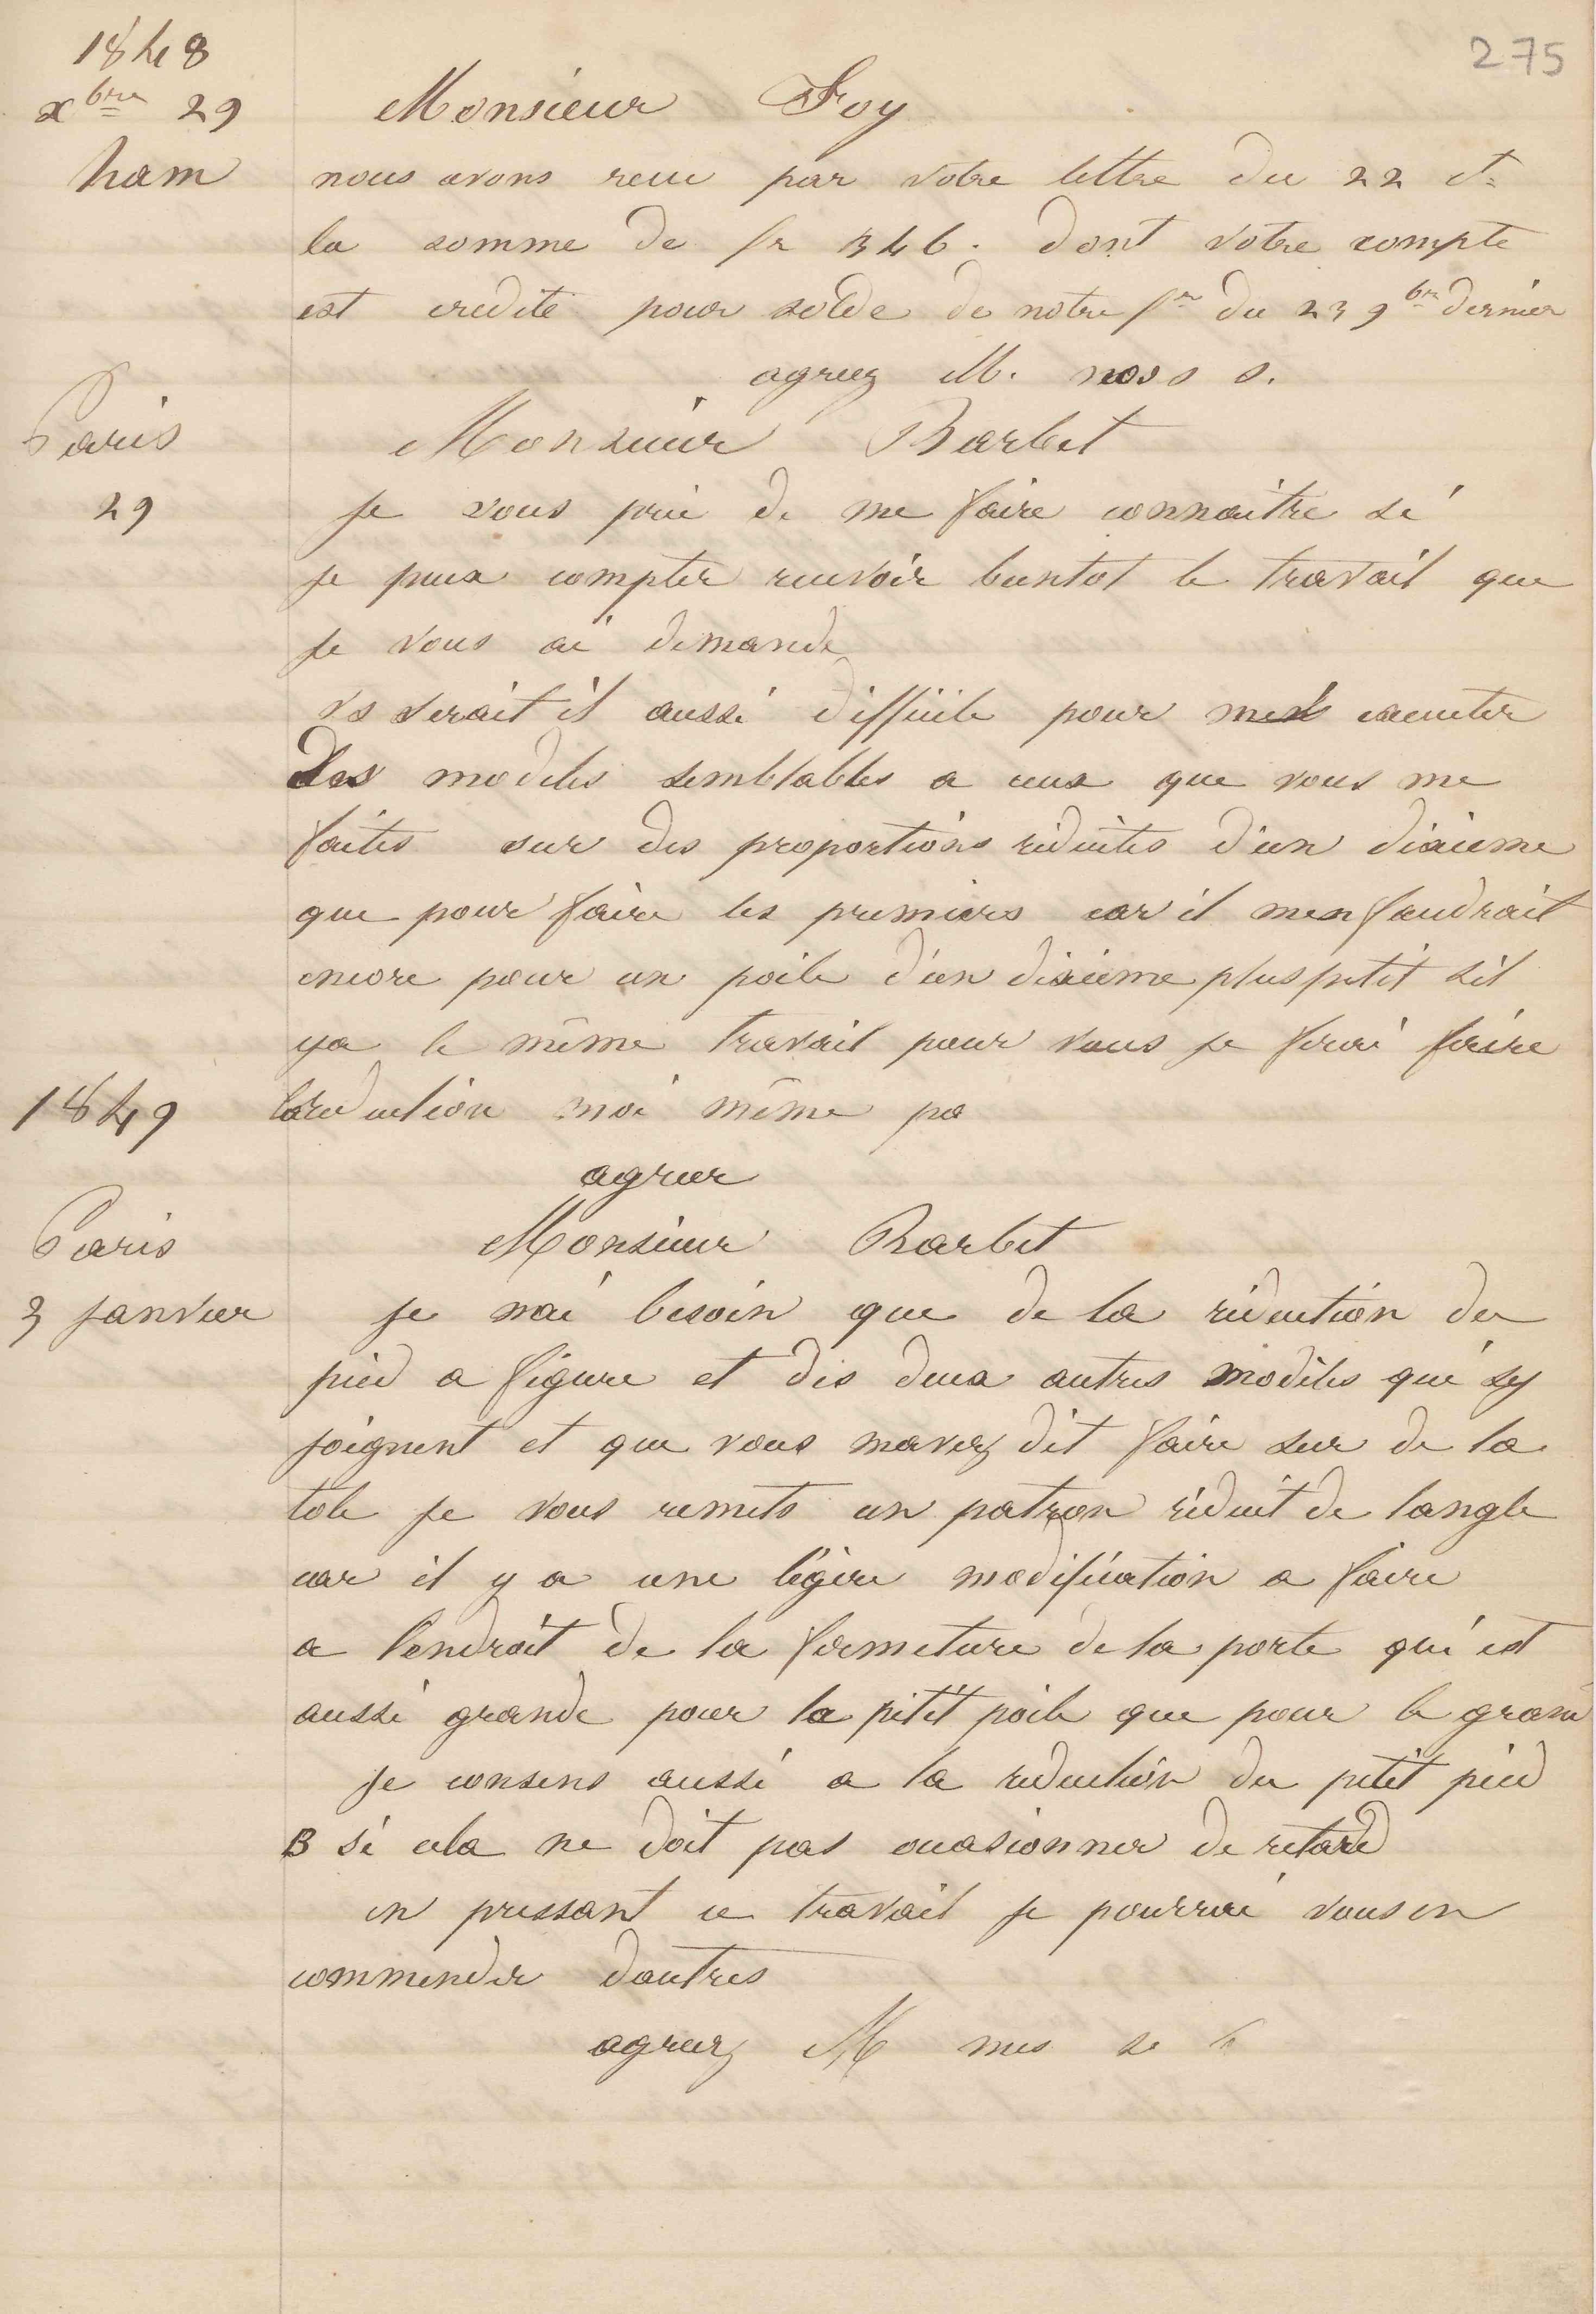 275
1848
xbre 29
ham
Monsieur Foy
nous avons recu par votre lettre du 22 ct
la somme de fr 346. dont votre compte
est credite pour solde de notre fre du 23 9bre dernier
agreez M. nos s s.
Paris
29
Monsieur Barbet
je vous prie de me faire connaitre si
je peux compter recevoir bientot le travail que
je vous ai demande
vs serait il aussi difficile pour executer
des modeles semblables a ceux que vous me
faites sur des proportions reduites d'un dixieme
que pour faire les premiers car il men faudrait
encore pour un poile d'un dixieme plus petit sil
ya le même travail pour vous je ferai faire
lareduction moi même pa
agreer
1849
Paris
3 janvier
Monsieur Barbet
je nai besoin que de la reduction du
pied a figure et des deux autres modeles qui sy
joignent et que vous mavez dit faire sur de la
tole je vous remets un patron reduit de langle
car il y a une légère modification a faire
a lendroit de la fermeture de la porte qui est
aussi grande pour le petit poile que pour le grand
je consens aussi a la reduction du petit pied
B si cela ne doit pas ocasionner de retard
en pressant ce travail je pourrai vous en
commender dautres
agreez M mes s